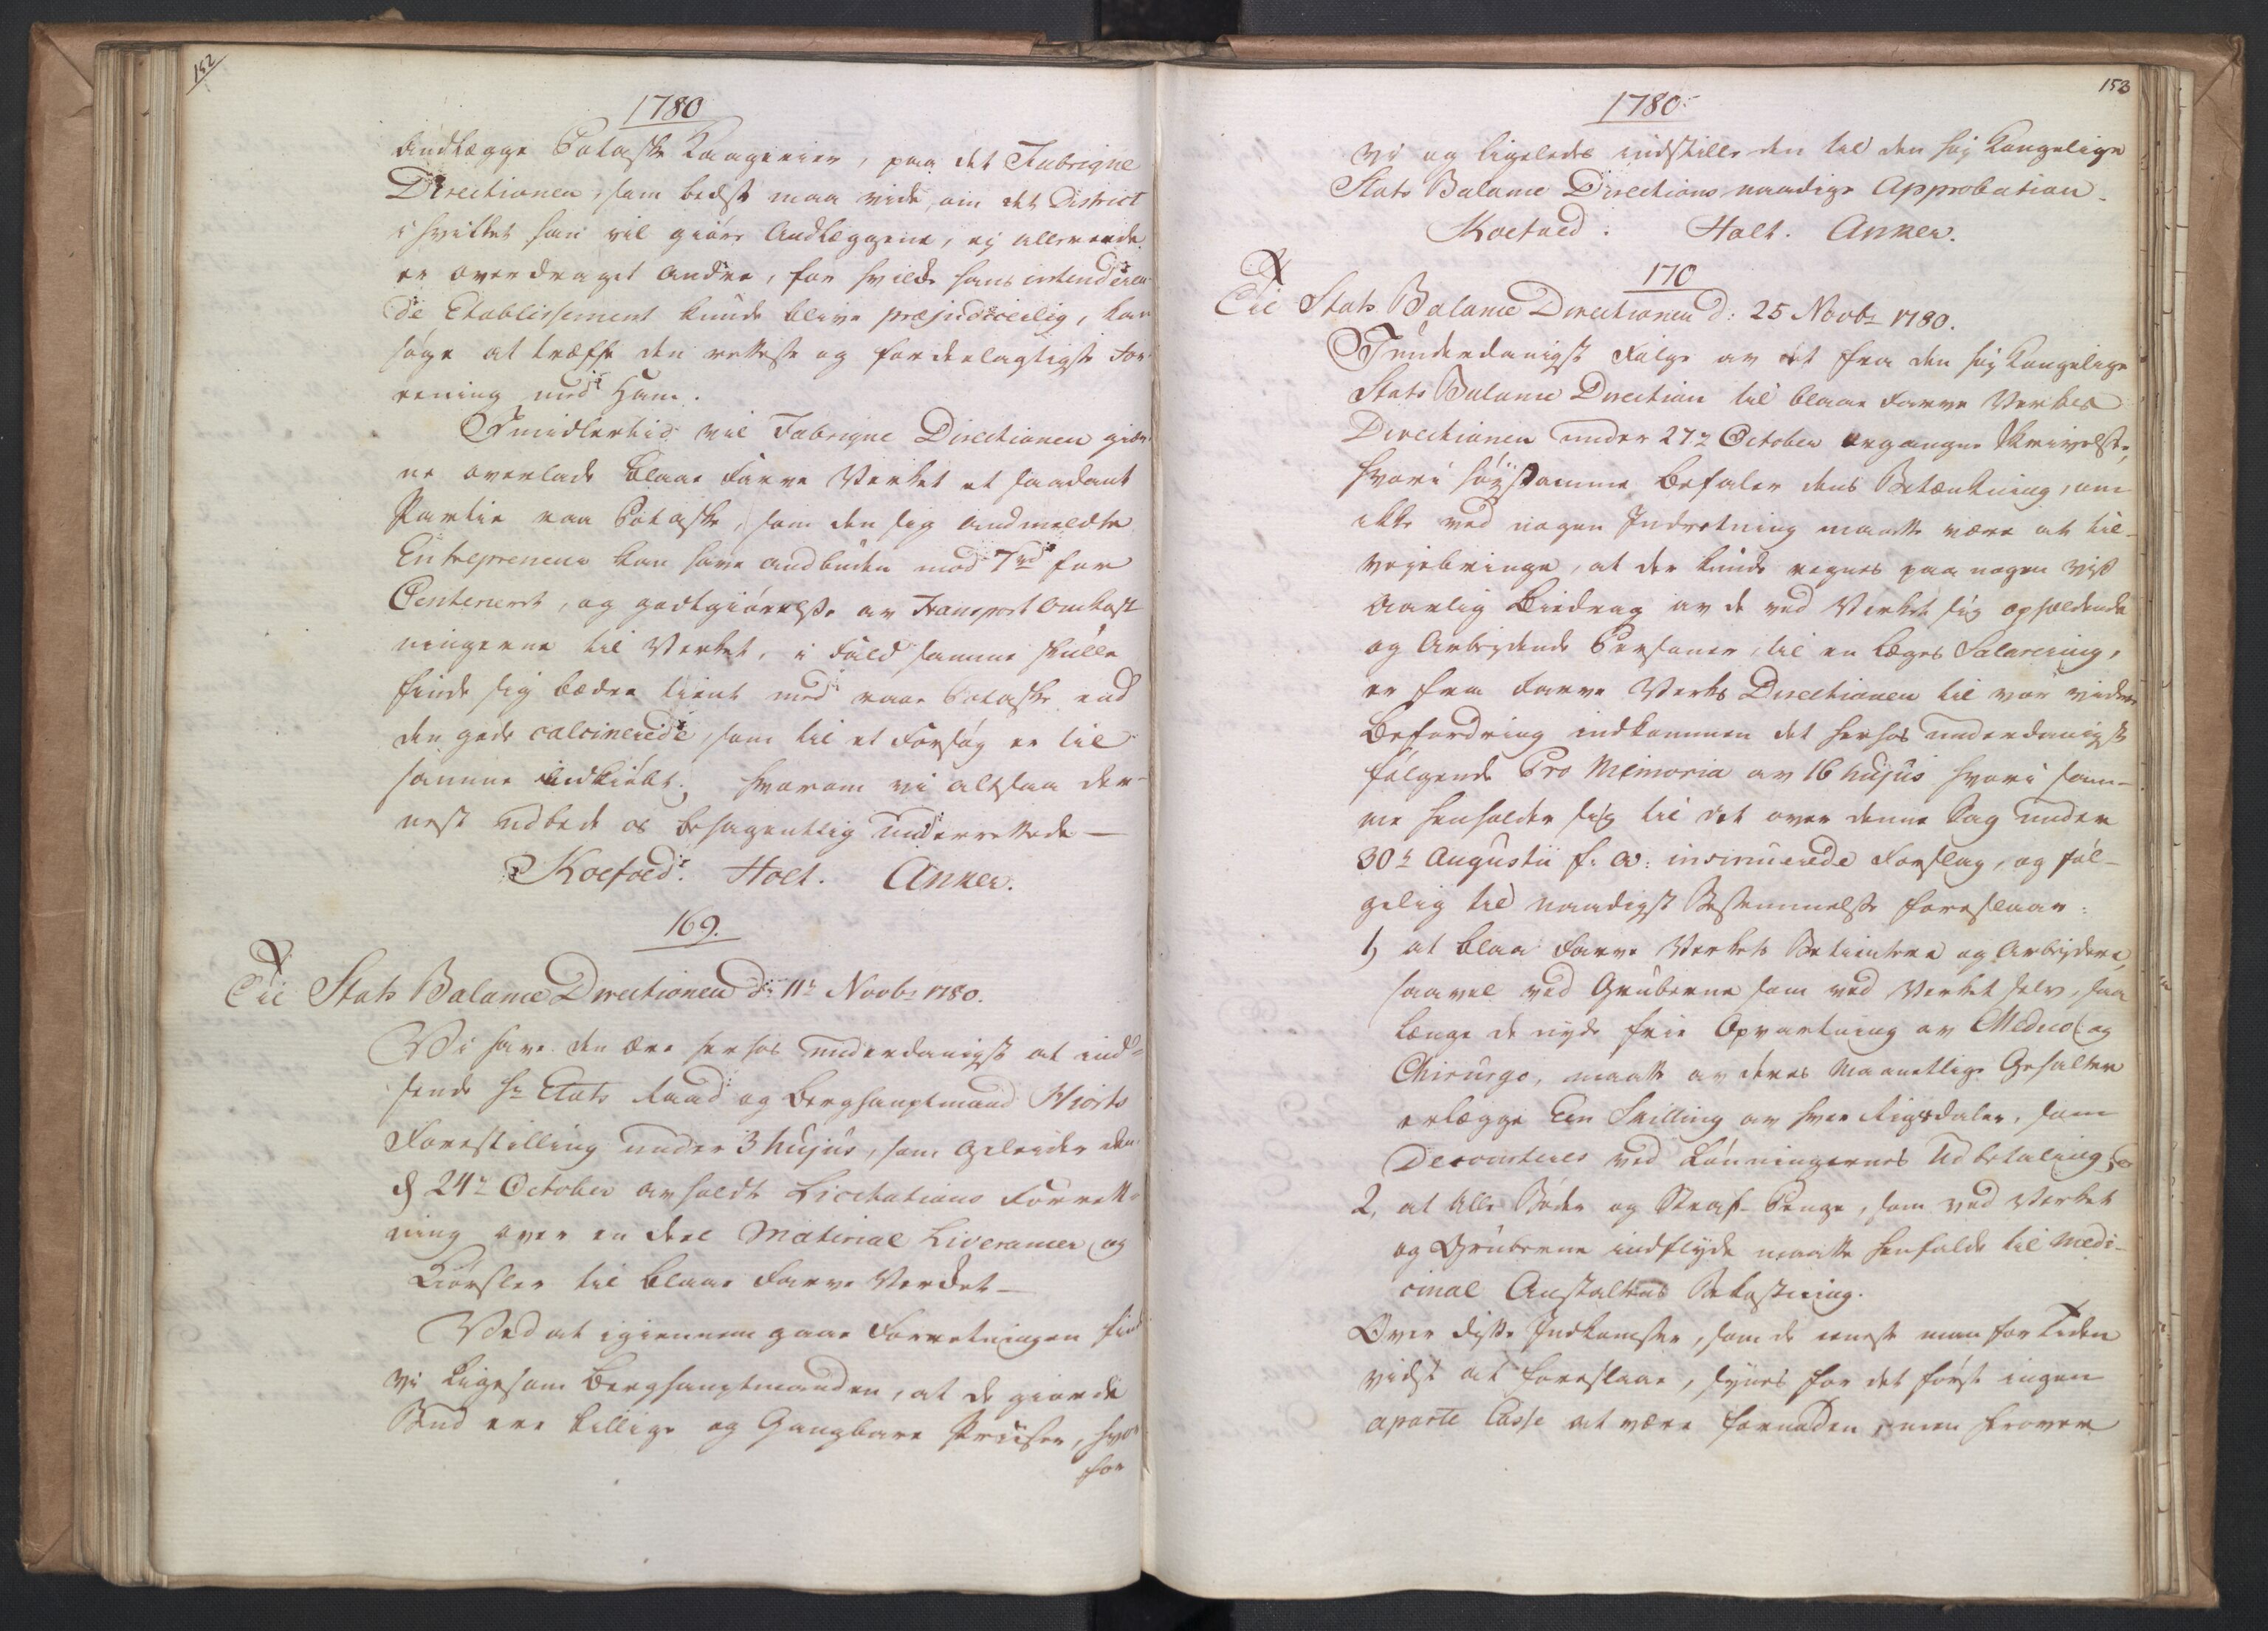 152
1780
Andlægge Potaske Kaagerier, paa det Fabriqve
Directionen, som bedst maa vide, om det District
i hvilket han vil giøre Andlæggene, ej allereede
er overdraget andre, for hvilke hans intenderen-
de Etablissement kunde blive præjudicerlig, kan
søge at træffe den retteste og fordeelagtigste For-
eening med Ham.
Imidlertid vil Fabriqve Directionen giær-
ne overlade Blaae Farve Verket et saadant
Partie raa Potaske, som den sig andmeldte
Entrepreneur kan have andbuden mod 7 rd for
Centeneret, og godtgiørelse av Transport Omkost
ningerne til Verket, i Fald samme skulle
finde sig bedre tient med raae Potaske end
den gode calcinerede, som til et Forsøg er til
samme indkiøbt; hvorom vi altsaa der-
nest udbede os behagentlig underrettede —
Koefoed. Holt. Anker.
169.
Til Stats Balance Directionen d: 11te Novbr 1780.
Vi have den ære herhos underdanigst at ind-
sende Hr Etats Raad og Berghauptmand Hiorts
Forestilling under 3 hujus, som geleider den
d 24de October avholdte Licitations Forrett-
ning over en deel Material Liverancer og
Kiørsler til Blaae Farve Verket —
Ved at igiennemgaae Forretningen find
vi ligesom Berghauptmanden, at de giorde
Bud ere billige og Gangbare Priiser, hvor
for
153
1780
vi og ligeledes indstille den til den høj Kongelige
Stats Balance Directions naadige Approbation.
Koefoed. Holt. Anker.
170
Til Stats Balance Directionen d: 25 Novbr 1780.
I underdanigst Følge av det fra den høj Kongelige
Stats Balance Direction til Blaae Farve Verkes
Directionen under 27de October ergangne Skrivelse,
hvori høystsamme befaler dens Betænkning, om
ikke ved nogen Indretning maatte være at til-
vejebringe, at der kunde regnes paa nogen viß
Aarlig Biedrag av de ved Verket sig opholdende
og Arbejdende Personer, til en Læges Salarering,
er fra Farve Verks Directionen til vor videre
Befordring indkommen det herhos underdanigst
følgende Pro Memoria av 16 hujus hvori sam-
me henholder sig til det over denne Sag under
30te Augustii f: A: insinuerede Forslag, og føl-
gelig til naadigst Bestemmelse foreslaar:
1) at Blaa Farve Verkets Betientere og Arbejdere,
saavel ved Gruberne som ved Verket selv, saa
længe de nyde frie Opvartning av Medico og
Chirurgo, maatte av deres Maanetlige Gehalter
erlægge Een Skilling av hver Rigsdaler, som
Decourteres ved Lønningernes Udbetaling, og
2, at alle Bøder og Straf-Penge, som ved Verket
og Gruberne indflyde maatte henfalde til Medi-
cinal Anstaltens Bekostning.
Over disse Indkomster, som de eneste man for Tiden
vidste at foreslaae, synes for det første ingen
aparte Casse at være fornøden, men herover